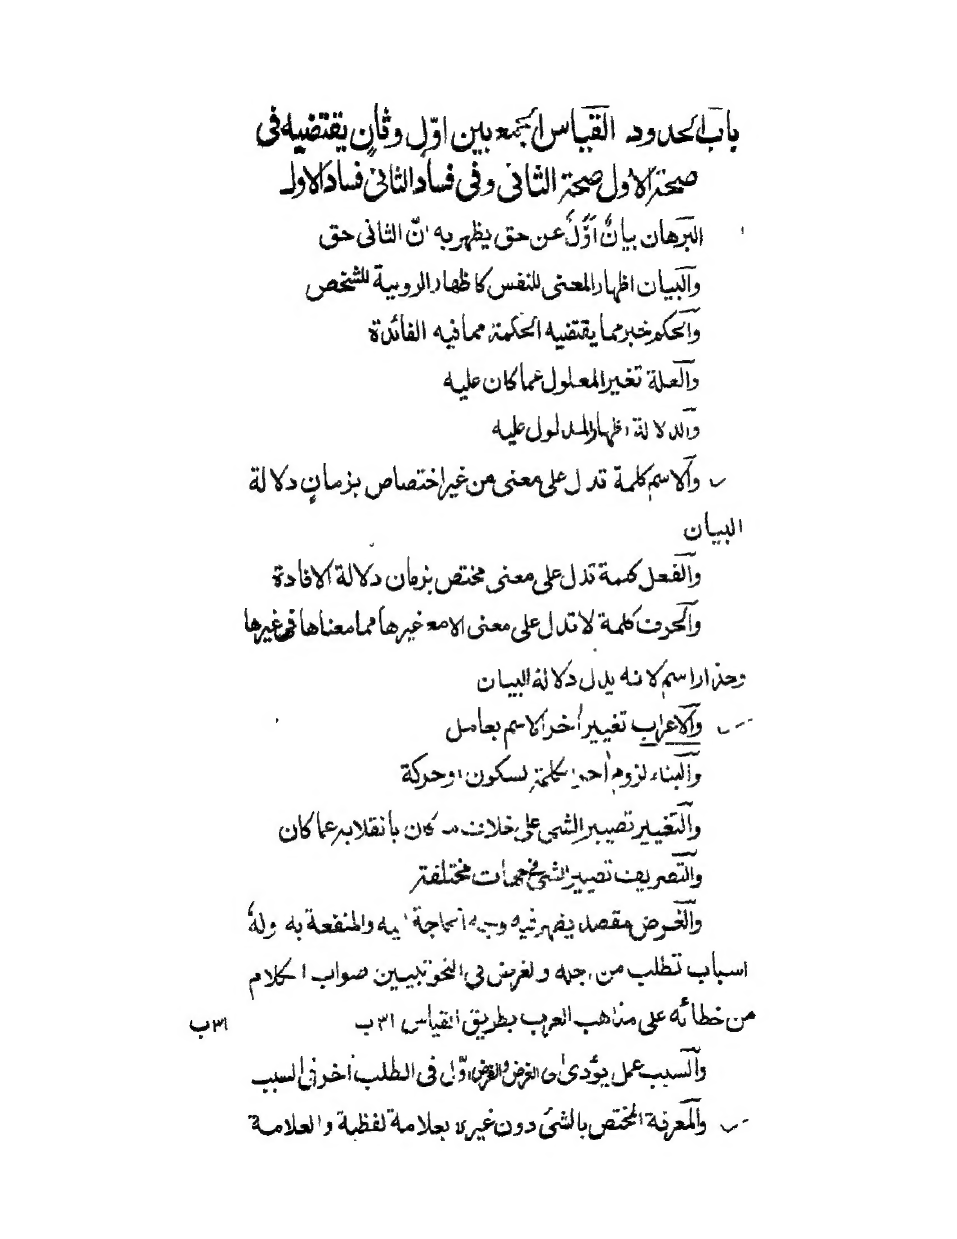 باب الحدود القياس الجمع بين اوّل وثانٍ يقتضيه في
صحة الاول صحة الثاني وفي فساد الثاني فساد الاول
البرهان بيانٌ اَوَّلُ عن حق يظهر به انّ الثاني حق
والبيان اظهار المعنى للنفس كاظهار الروية للشخص
والحكم خبر مما يقتضيه الحكمة مما فيه الفائدة
والعلة تغير المعلول عما كان عليه
والدلالة اظهار المدلول عليه
والاسم كلمة تدل على معنى من غير اختصاص بزمانٍ دلالة
البيان
والفعل كلمة تدل على معنى مختص بزمان دلالة الافادة
والحرف كلمة لا تدل على معنى الا مع غيرها مما معناها في غيرها
وحذار اسم لانه يدل دلالة البيان
والاعراب تغيير اٰخر الاسم بعامل
والبناء لزوم اٰخر الكلمة لسكون او حركة
والتغيير تصيير الشي على خلاف ما كان بانقلابه عما كان
والتصريف تصيير الشي في جهات مختلفة
والغرض مقصد يظهر فيه وجه الحاجة اليه والمنفعة به وله
اسباب تطلب من اجله والغرض في النحو تبيين صواب الكلام
من خطائه على مذاهب العرب بطريق القياس ٣١ب
٣١ب
والسبب عمل يؤدى الى الغرض والغرض اوّل في الطلب اٰخر في السبب
والمعرفة المختص بالشئ دون غيره بعلامة لفظية والعلامة